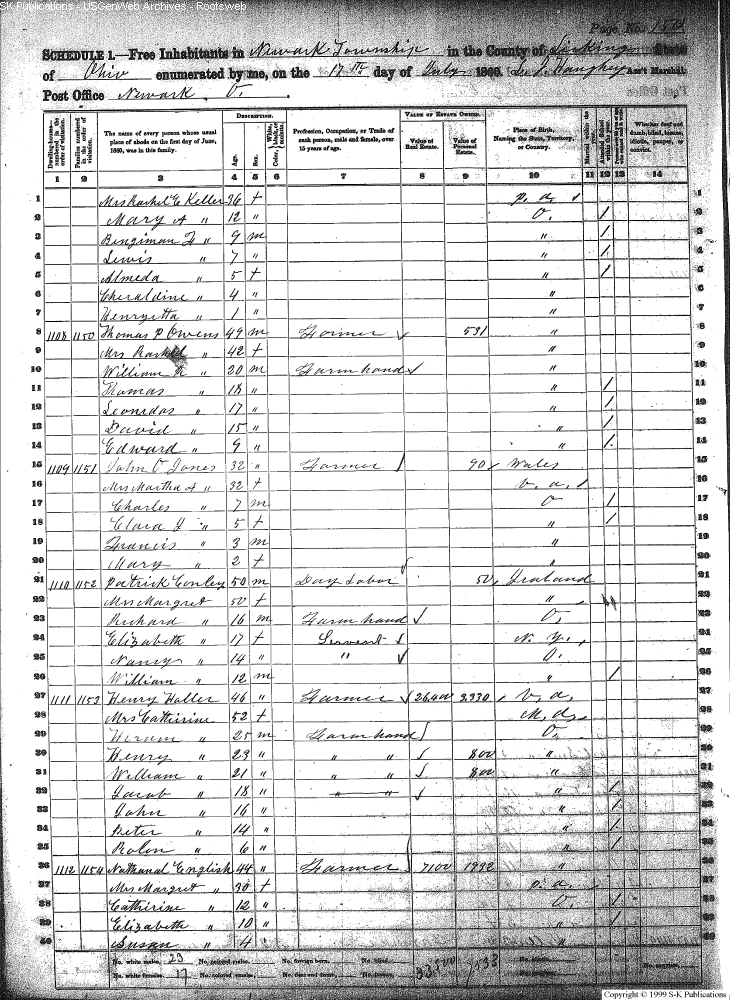 SK Publications - USGenWeb Archives - Rootsweb
Page No. 154
SCHEDULE 1.—Free Inhabitants in Newark Township in the County of Licking State
of Ohio enumerated by me, on the 17th day of July 1860. Ass't Marshal.
Post Office Newark O.
Dwelling-houses numbered in the order of visitation.
Families numbered in the order of visitation.
The name of every person whose usual place of abode on the first day of June, 1860, was in this family.
DESCRIPTION.
Age. Sex. Color,
Profession, Occupation, or Trade of each person, male and female, over 15 years of age.
VALUE OF ESTATE OWNED.
Value of Real Estate. Value of Personal Estate.
Place of Birth, Naming the State, Territory, or Country.
Whether deaf and dumb, blind, insane, idiotic, pauper, or convict.
1 2 3 4 5 6 7 8 9 10 11 12 13 14
1 Mrs Rachel E Keller 36 f P. a. 1
2 Mary A " 12 " O. / 2
3 Bingiman F " 9 m " / 3
4 Lewis " 7 " " / 4
5 Almeda " 5 f " / 5
6 Cheraldine " 4 " " 6
7 Henryetta " 1 " " 7
8 1108 1150 Thomas P Owens 49 m Farmer 531 " 8
9 Mrs Rachel " 42 f " 9
10 William R " 20 m Farm hand " 10
11 Thomas " 18 " " / 11
12 Leonidas " 17 " " / 12
13 David " 15 " " / 13
14 Edward " 9 " " / 14
15 1109 1151 John O Jones 32 " Farmer 90 Wales 15
16 Mrs Martha A " 32 f V. a. 16
17 Charles " 7 m O / 17
18 Clara J " 5 f " / 18
19 Francis " 3 m " 19
20 Mary " 2 f " 20
21 1110 1152 Patrick Conley 50 m Day Labor 50 Iraland 21
22 Mrs Margret 50 f " 22
23 Richard " 16 m Farm hand O. 23
24 Elizabeth " 17 f Servent N. Y. 24
25 Nancy " 14 " " O. 25
26 William " 12 m / 26
27 1111 1153 Henry Holler 46 " Farmer 26,400 3,330 V. a. 27
28 Mrs Cathirine 52 f M. d. 28
29 Hiram " 25 m Farm hand O. 29
30 Henry " 23 " " " 800 " 30
31 William " 21 " " " 800 " 31
32 Jacob " 18 " " " " / 32
33 John " 16 " " / 33
34 Peter " 14 " " / 34
35 Rolon " 6 " " / 35
36 1112 1154 Nathanal English 44 " Farmer 7100 1992 " 36
37 Mrs Margret " 30 f P. a. 37
38 Cathirine " 12 " O. / 38
39 Elizabeth " 10 " " / 39
40 Susan " 4 " " 40
No. white males, 23 No. colored males, No. foreign born, No. blind,
No. white females, 17 No. colored females, No. deaf and dumb, 33,500 7533
Copyright © 1999 S-K Publications